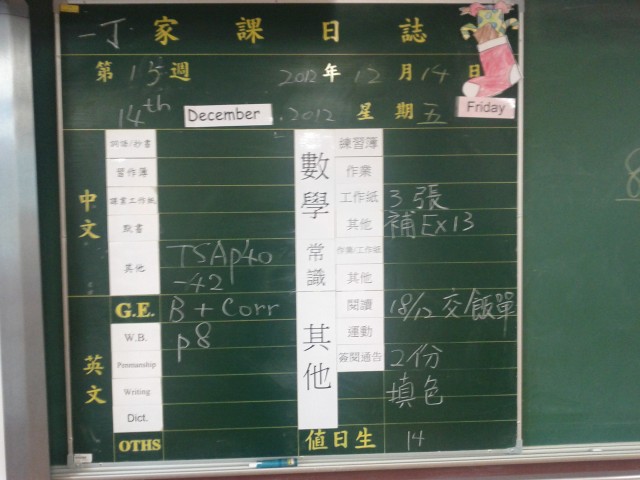 一丁 家課日誌
第 15 週 2012 年 12 月 14 日
14th December, 2012 星期五 Friday
中文
詞語/抄書
習作簿
課業工作紙
默書
其他 TSAp40
-42
英文
G.E. B + Corr
W.B. p8
Penmanship
Writing
Dict.
OTHS
數學
練習簿
作業
工作紙 3張
其他 補Ex13
常識
作業/工作紙
其他
其他
閱讀 18/12 交飯單
運動
簽閱通告 2份
填色
值日生 14
8